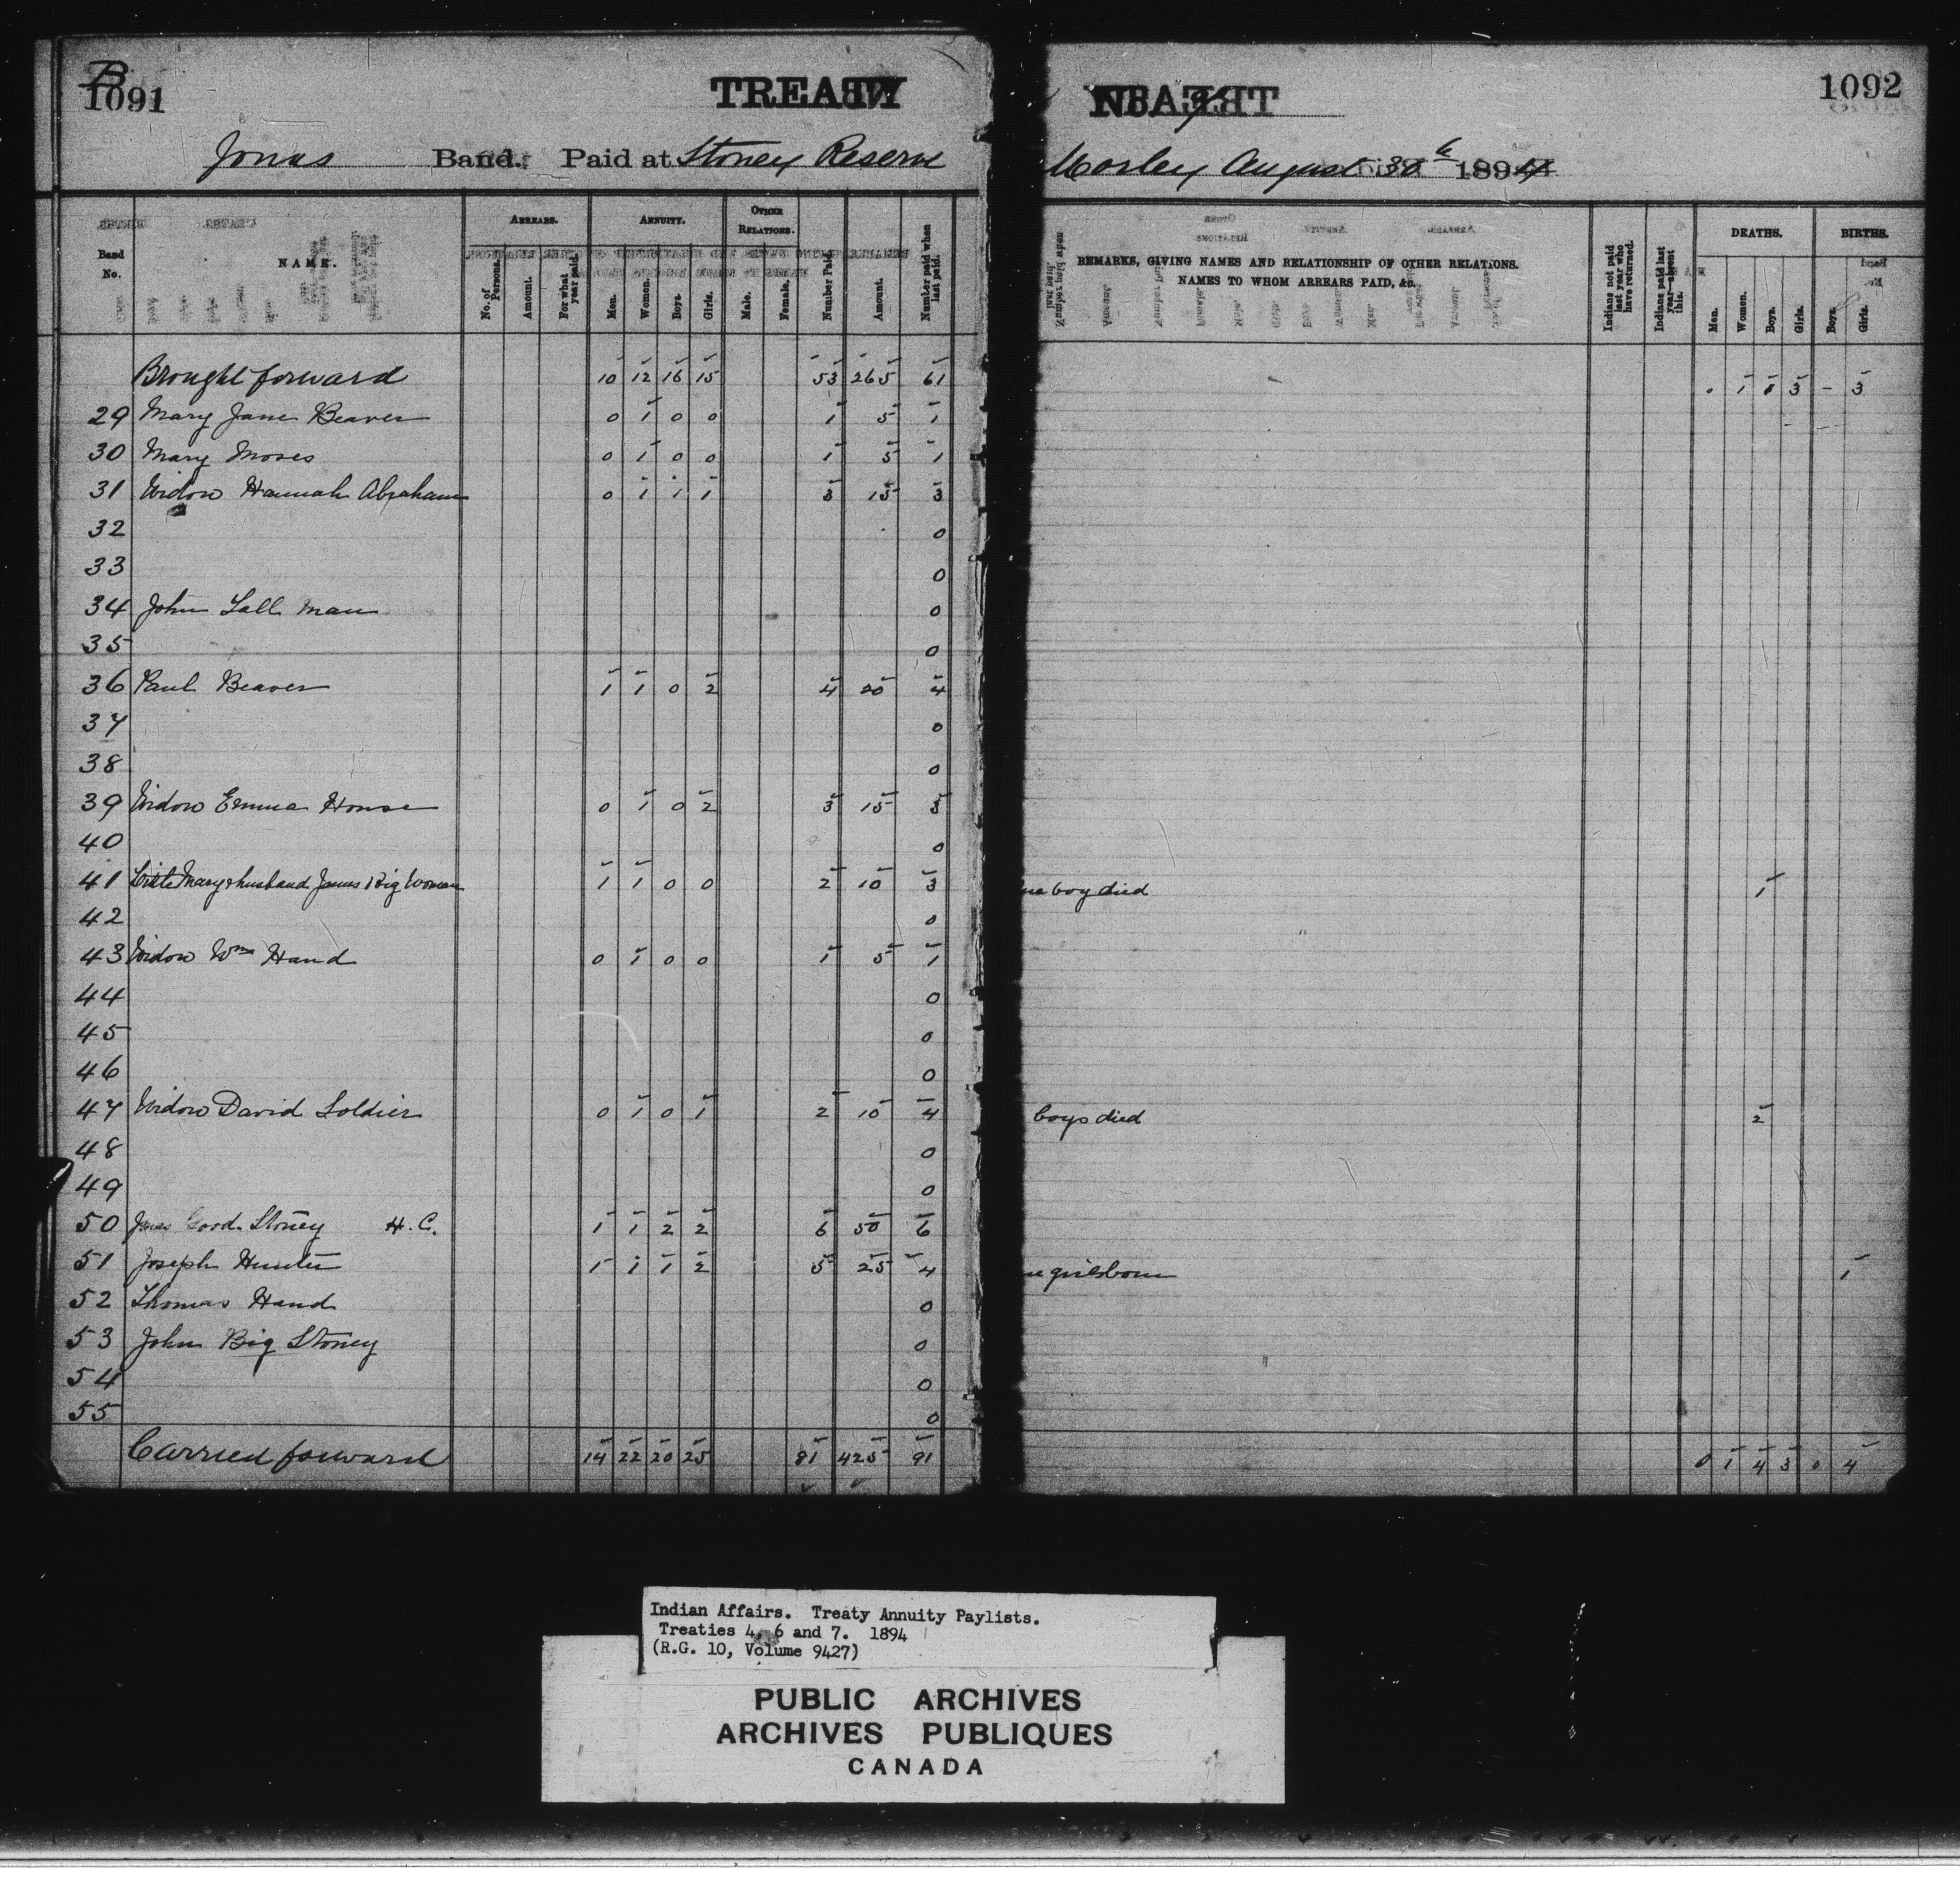 B
1091
TREATY
1092
Jonas Band. Paid at Stoney Reserve
Morley August 30th 1894
Band No.
NAME.
ARREARS.
No. of Persons.
Amount.
For what year paid.
ANNUITY.
Men.
Women.
Boys.
Girls.
OTHER RELATIONS.
Male.
Female.
Number Paid.
Amount.
Number paid when last paid.
REMARKS, GIVING NAMES AND RELATIONSHIP OF OTHER RELATIONS.
NAMES TO WHOM ARREARS PAID, &c.
Indians not paid last year who have returned.
Indians paid last year—absent this.
DEATHS.
Men.
Women.
Boys.
Girls.
BIRTHS.
Boys.
Girls.
Brought forward 10 12 16 15 53 265 61 0 1 1 3 - 3
29 Mary Jane Beaver 0 1 0 0 1 5 1
30 Mary Moses 0 1 0 0 1 5 1
31 Widow Hannah Abraham 0 1 1 1 3 15 3
32 0
33 0
34 John Tall Man 0
35 0
36 Paul Beaver 1 1 0 2 4 20 4
37 0
38 0
39 Widow Emma House 0 1 0 2 3 15 3
40 0
41 Little Mary & husband James Big Woman 1 1 0 0 2 10 3 boy died 1
42 0
43 Widow Wm Hand 0 1 0 0 1 5 1
44 0
45 0
46 0
47 Widow David Soldier 0 1 0 1 2 10 4 boys died 2
48 0
49 0
50 James Good Stoney H.C. 1 1 2 2 6 50 6
51 Joseph Hunter 1 1 1 2 5 25 4 girl born 1
52 Thomas Hand 0
53 John Big Stoney 0
54 0
55 0
Carried forward 14 22 20 25 81 425 91 0 1 4 3 0 4
Indian Affairs. Treaty Annuity Paylists.
Treaties 4, 6 and 7. 1894
(R.G. 10, Volume 9427)
PUBLIC ARCHIVES
ARCHIVES PUBLIQUES
CANADA